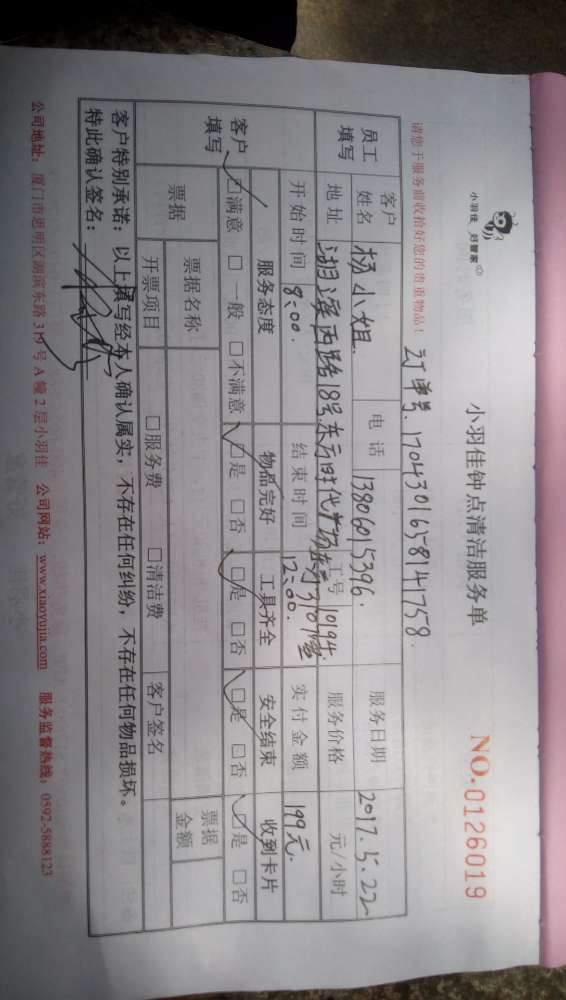 小羽佳 好管家
小羽佳钟点清洁服务单
NO.0126019
请您于服务前收拾好您的贵重物品！
订单号:1704301658141758.
员工填写 客户姓名 杨小姐. 电话 13806015396. 服务日期 2017.5.22
地址 湖滨西路18号东方时代广场 工号 10194. 服务价格 元/小时
开始时间 8:00. 结束时间 12:00. 实付金额 199元.
客户填写 服务态度 物品完好 工具齐全 安全结束 收到卡片
☑满意 □一般 □不满意 ☑是 □否 ☑是 □否 ☑是 □否 ☑是 □否
票据 票据名称: 票据金额
开票项目 □服务费 □清洁费 客户签名
客户特别承诺：以上填写经本人确认属实，不存在任何纠纷，不存在任何物品损坏。
特此确认签名：
公司地址：厦门市思明区湖滨东路319号A幢2层小羽佳 公司网站：www.xiaoyujia.com 服务监督热线：0592-5888123